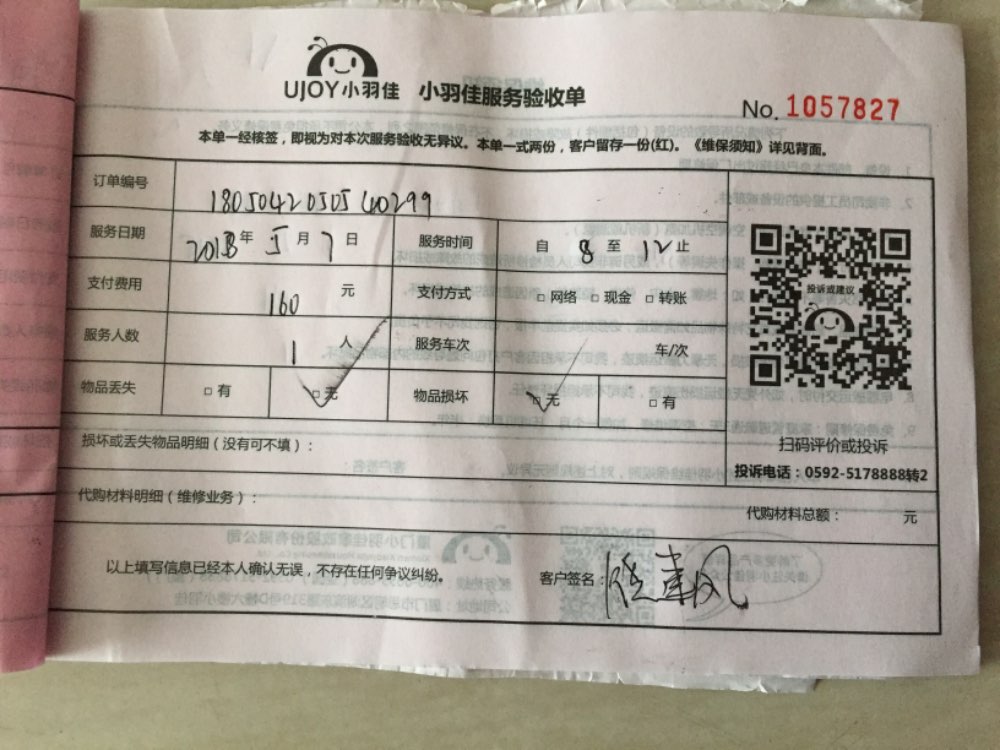 UJOY小羽佳 小羽佳服务验收单
No. 1057827
本单一经核签，即视为对本次服务验收无异议。本单一式两份，客户留存一份(红)。《维保须知》详见背面。
订单编号 1805042050540299
服务日期 2018年5月7日 服务时间 自8至12止
支付费用 160元 支付方式 □网络 □现金 □转账
服务人数 1人 服务车次 车/次
物品丢失 □有 □无 物品损坏 □无 □有
投诉或建议
扫码评价或投诉
投诉电话：0592-5178888转2
损坏或丢失物品明细（没有可不填）：
代购材料明细（维修业务）：
代购材料总额： 元
以上填写信息已经本人确认无误，不存在任何争议纠纷。
客户签名：